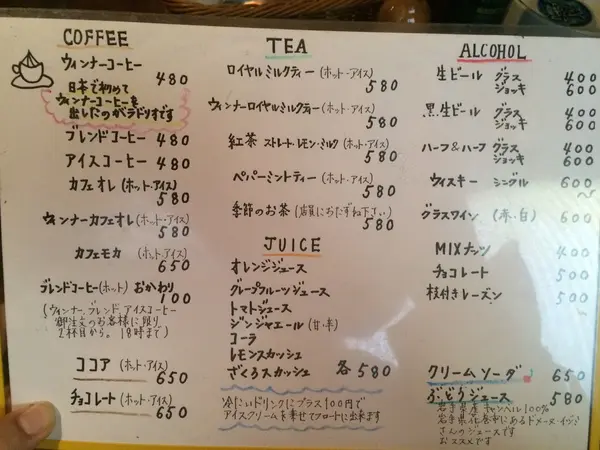 COFFEE
ウィンナーコーヒー 480
日本で初めて
ウィンナーコーヒーを
出したのがラドリオです
ブレンドコーヒー 480
アイスコーヒー 480
カフェオレ (ホット・アイス) 580
ウィンナーカフェオレ (ホット・アイス) 580
カフェモカ (ホット・アイス) 650
ブレンドコーヒー(ホット) おかわり 100
(ウィンナー、ブレンド、アイスコーヒー
御注文のお客様に限り
2杯目から。18時まで)
ココア (ホット・アイス) 650
チョコレート (ホット・アイス) 650
TEA
ロイヤルミルクティー (ホット・アイス) 580
ウィンナーロイヤルミルクティー (ホット・アイス) 580
紅茶 ストレート・レモン・ミルク (ホット・アイス) 580
ペパーミントティー (ホット・アイス) 580
季節のお茶 (店員におたずね下さい) 580
JUICE
オレンジジュース
グレープフルーツジュース
トマトジュース
ジンジャエール (甘・辛)
コーラ
レモンスカッシュ
ざくろスカッシュ 各 580
冷たいドリンクにプラス100円で
アイスクリームを乗せてフロートに出来ます
ALCOHOL
生ビール グラス 400
ジョッキ 600
黒生ビール グラス 400
ジョッキ 600
ハーフ&ハーフ グラス 400
ジョッキ 600
ウィスキー シングル 600
から
グラスワイン (赤・白) 600
MIXナッツ 400
チョコレート 500
枝付きレーズン 500
クリームソーダ 650
ぶどうジュース 580
岩手県産キャンベル100%
岩手県花巻市にあるドメーヌ・イヴ
さんのジュースです
おススメです